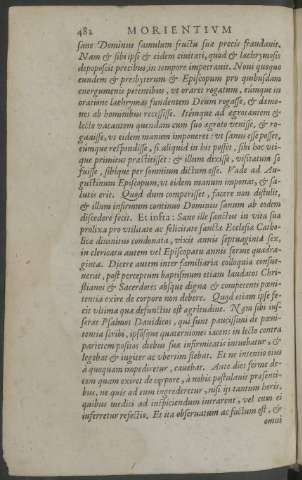 482 MORIENTIVM
sane Dominus famulum fructu suæ precis fraudauit.
Nam & sibi ipsi & eidem ciuitati, quod & lachrymosis
depoposcit precibus, in tempore impetrauit. Noui quoque
eundem & presbyterum & Episcopum pro quibusdam
energumenis petentibus, vt oraret rogatum, eumque in
oratione lachrymas fundentem Deum rogasse, & dæmo-
nes ab hominibus recessisse. Itémque ad ægrotantem &
lecto vacantem quendam cum suo ægroto venisse, & ro-
gauisse, vt eidem manum imponeret: vt sanus esse posset,
eumque respondisse, si aliquid in his posset, sibi hoc vti-
que primitus præstitisset: & illum dixisse, visitatum se
fuisse, sibique per somnium dictum esse. Vade ad Au-
gustinum Episcopum, vt eidem manum imponat, & sa-
luus erit. Quod dum comperisset, facere non distulit,
& illum infirmum continuo Dominus sanum ab eodem
discedere fecit. Et infra: Sane ille sanctus in vita sua
prolixa pro vtilitate ac felicitate sanctæ Ecclesiæ Catho-
licæ diuinitus condonata, vixit annis septuaginta sex,
in clericatu autem vel Episcopatu annis ferme quadra-
ginta. Dicere autem inter familiaria colloquia consue-
uerat, post perceptum baptismum etiam laudatos Chri-
stianos & Sacerdotes absque digna & competenti pœni-
tentia exire de corpore non debere. Quod etiam ipse fe-
cit vltima qua defunctus est ægritudine. Nam sibi ius-
serat Psalmos Dauidicos, qui sunt paucissimi de pœni-
tentia scribi, ipsosque quaterniones iacens in lecto contra
parietem positos diebus suæ infirmitatis intuebatur, &
legebat & iugiter ac vbertim flebat. Et ne intentio eius
à quoquam impediretur, cauebat. Ante dies ferme de-
cem quam exiret de corpore, à nobis postulauit præsenti-
bus, ne quis ad eum ingrederetur, nisi in tantum horis,
quibus medici ad inspiciendum intrarent, vel cum ei
inferretur refectio. Et ita obseruatum ac factum est, &
omni